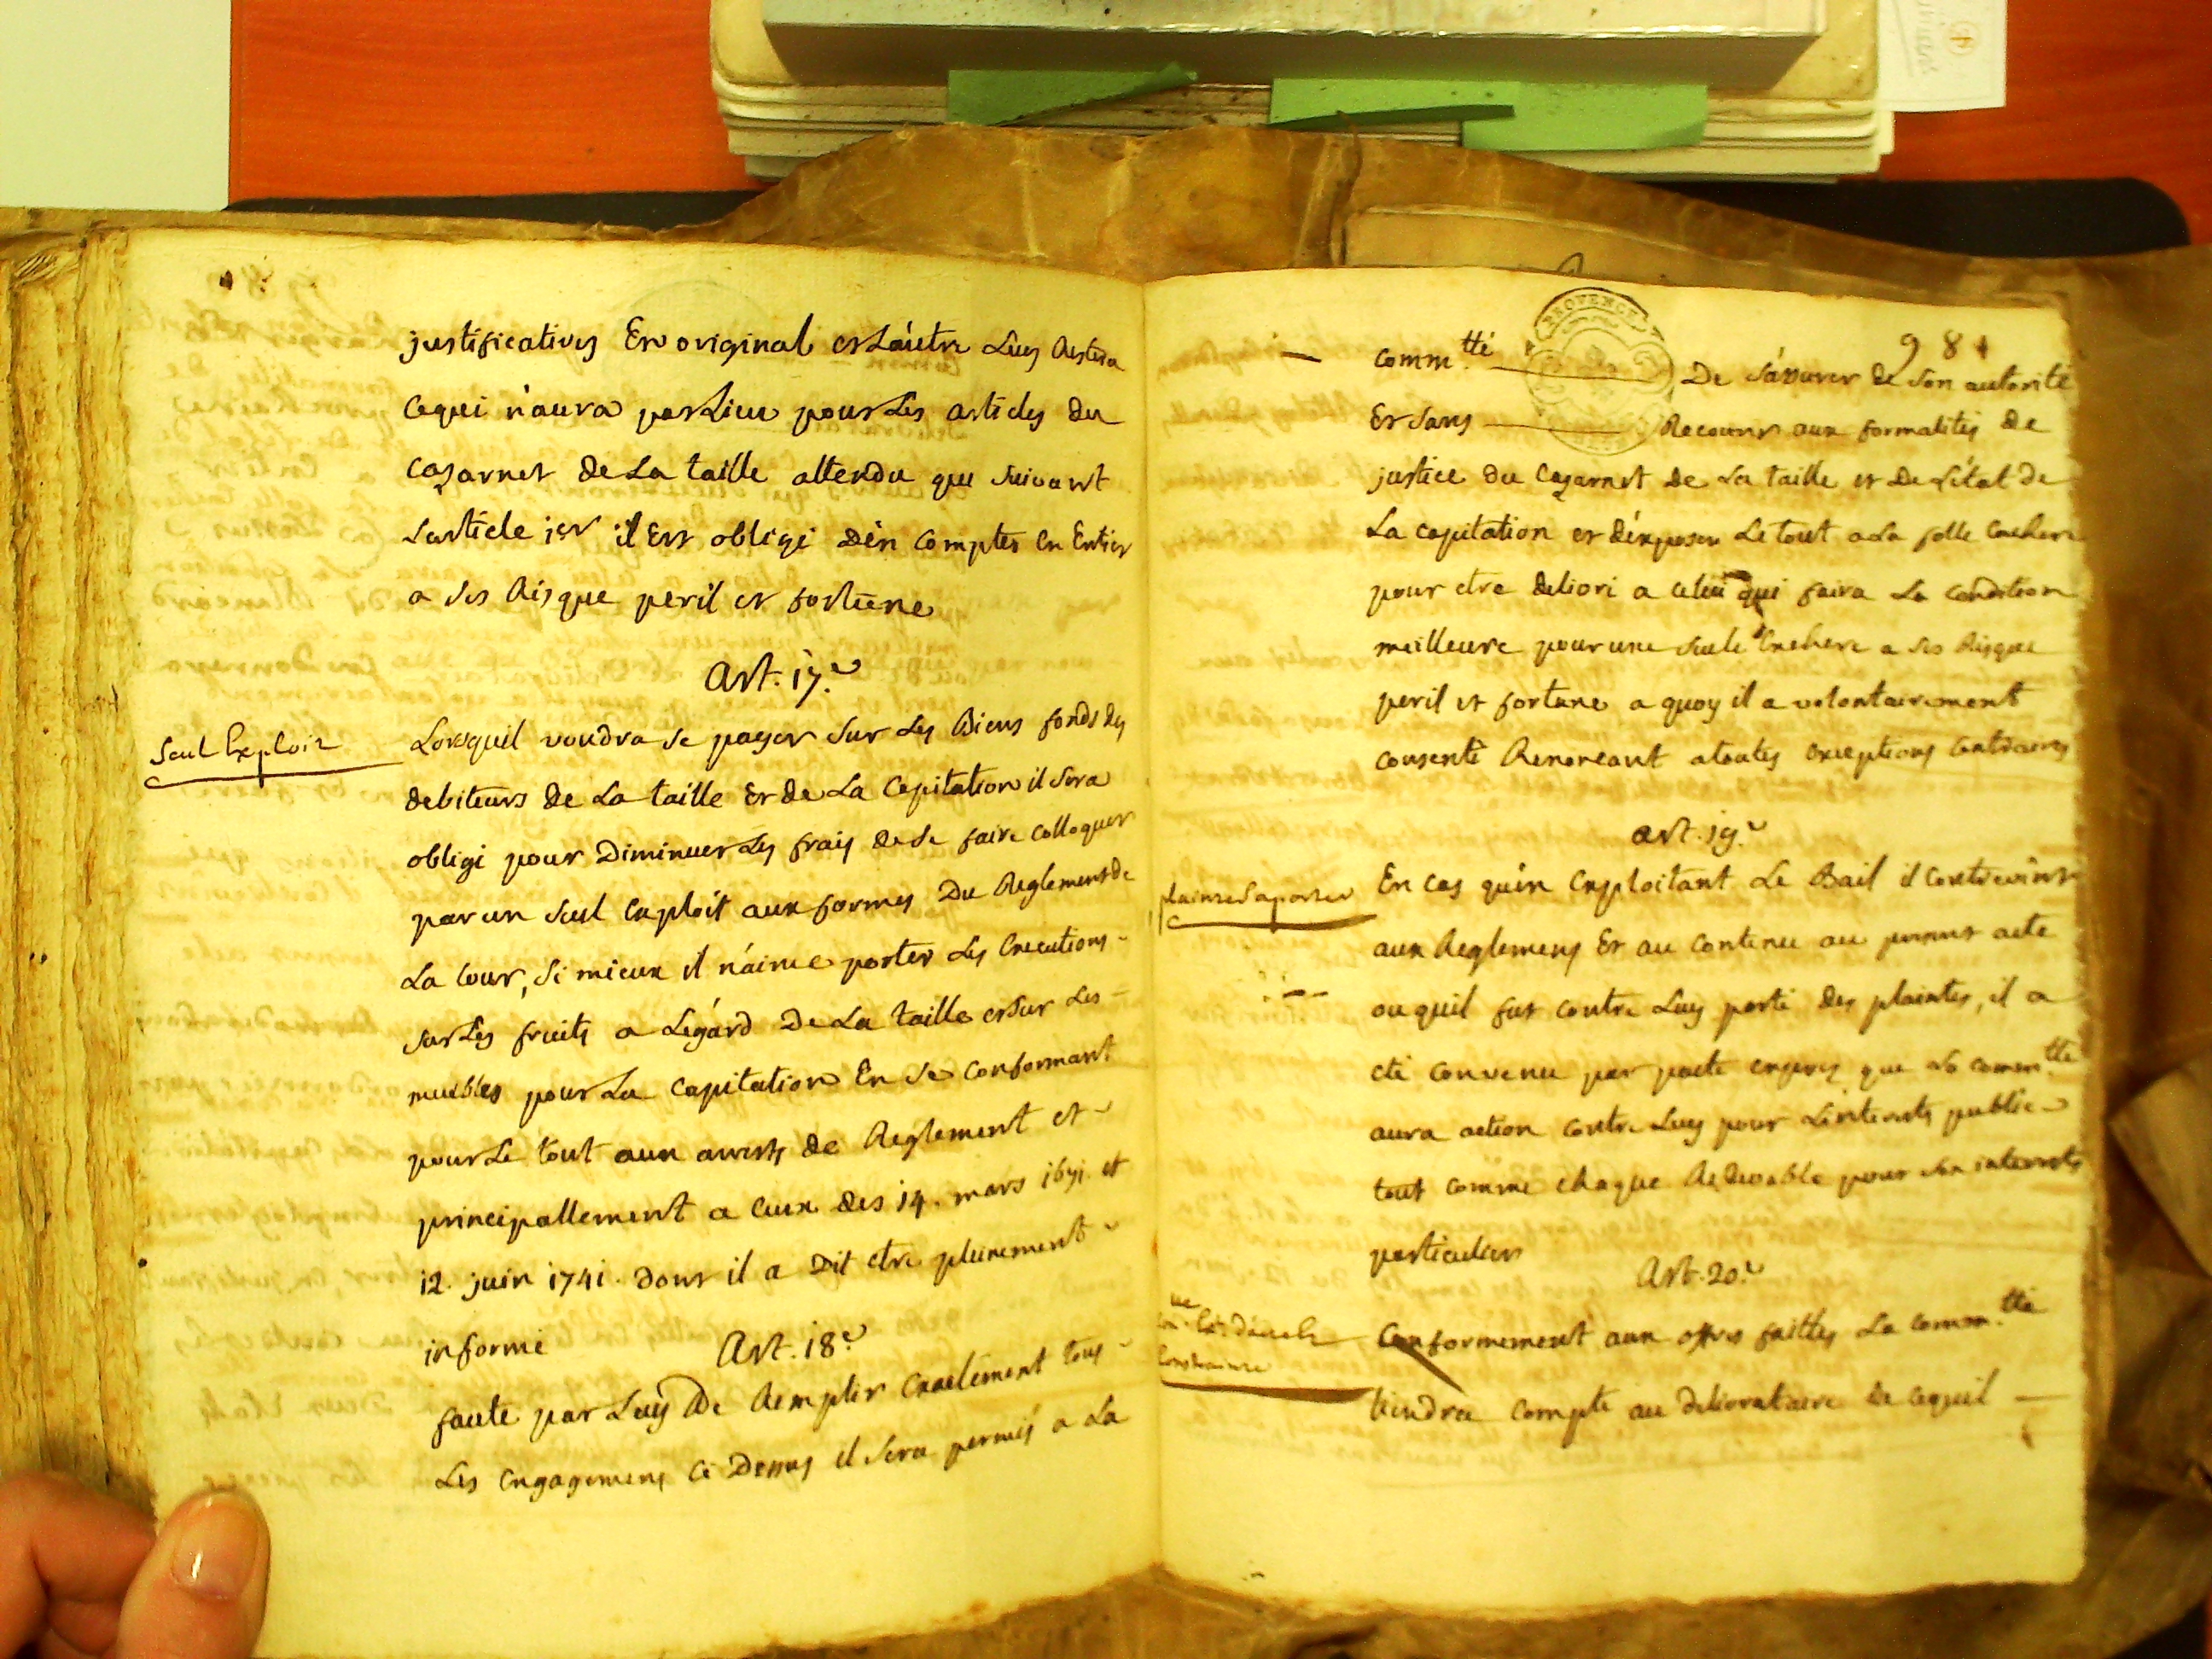 justificatives En original et L'autre Luy Restera
cequi n'aura pas Lieu pour Les articles du
cazarnet de La taille attendu que suivant
L'article 1er il Est obligé D'en compter En Entier
a ses Risque peril et fortune
Art. 17.e
Seul Exploit
Lorsquil voudra se payer sur Les Biens fonds des
debiteurs de La taille Et de La Capitation il sera
obligé pour Diminuer Les frais de se faire colloquer
par un seul Exploit aux formes Du Reglement de
La Cour, si mieux il n'aime porter Les Executions
sur Les fruits a L'egard De La taille et sur Les
meubles pour La Capitation En se conformant
pour Le tout aux arrests de Reglement et
principallement a Ceux des 14. mars 1671. et
12. juin 1741. dont il a Dit etre pleinement
informé
Art. 18.e
faute par Luy De Remplir Exactement tous
Les Engagemens Ci Dessus il sera permis a La
PROVENCE
981
comm.tté De s'assurer de son autorité
Et sans Recourir aux formalités de
justice du Cazarnet de La taille et De L'état de
La capitation et d'exposer Le tout a La folle Enchere
pour etre delivré a celui qui faira La condition
meilleure pour une seule Enchere a ses Risque
peril et fortune a quoy il a volontairement
consenti Renonçant a toutes exceptions Contraires
art. 19.e
plaintes a porter
En cas qu'en Exploitant Le Bail il contrevint
aux Reglemens Et au contenu au present acte
ou quil fut contre Luy porté des plaintes, il a
eté convenu par pacte exprez que La comm.tté
aura action contre Luy pour L'interets public
tout comme chaque Redevable pour son interets
particulier
Art. 20.e
Conformement aux offres faittes La comm.tté
tiendra compte au delivrataire de cequil